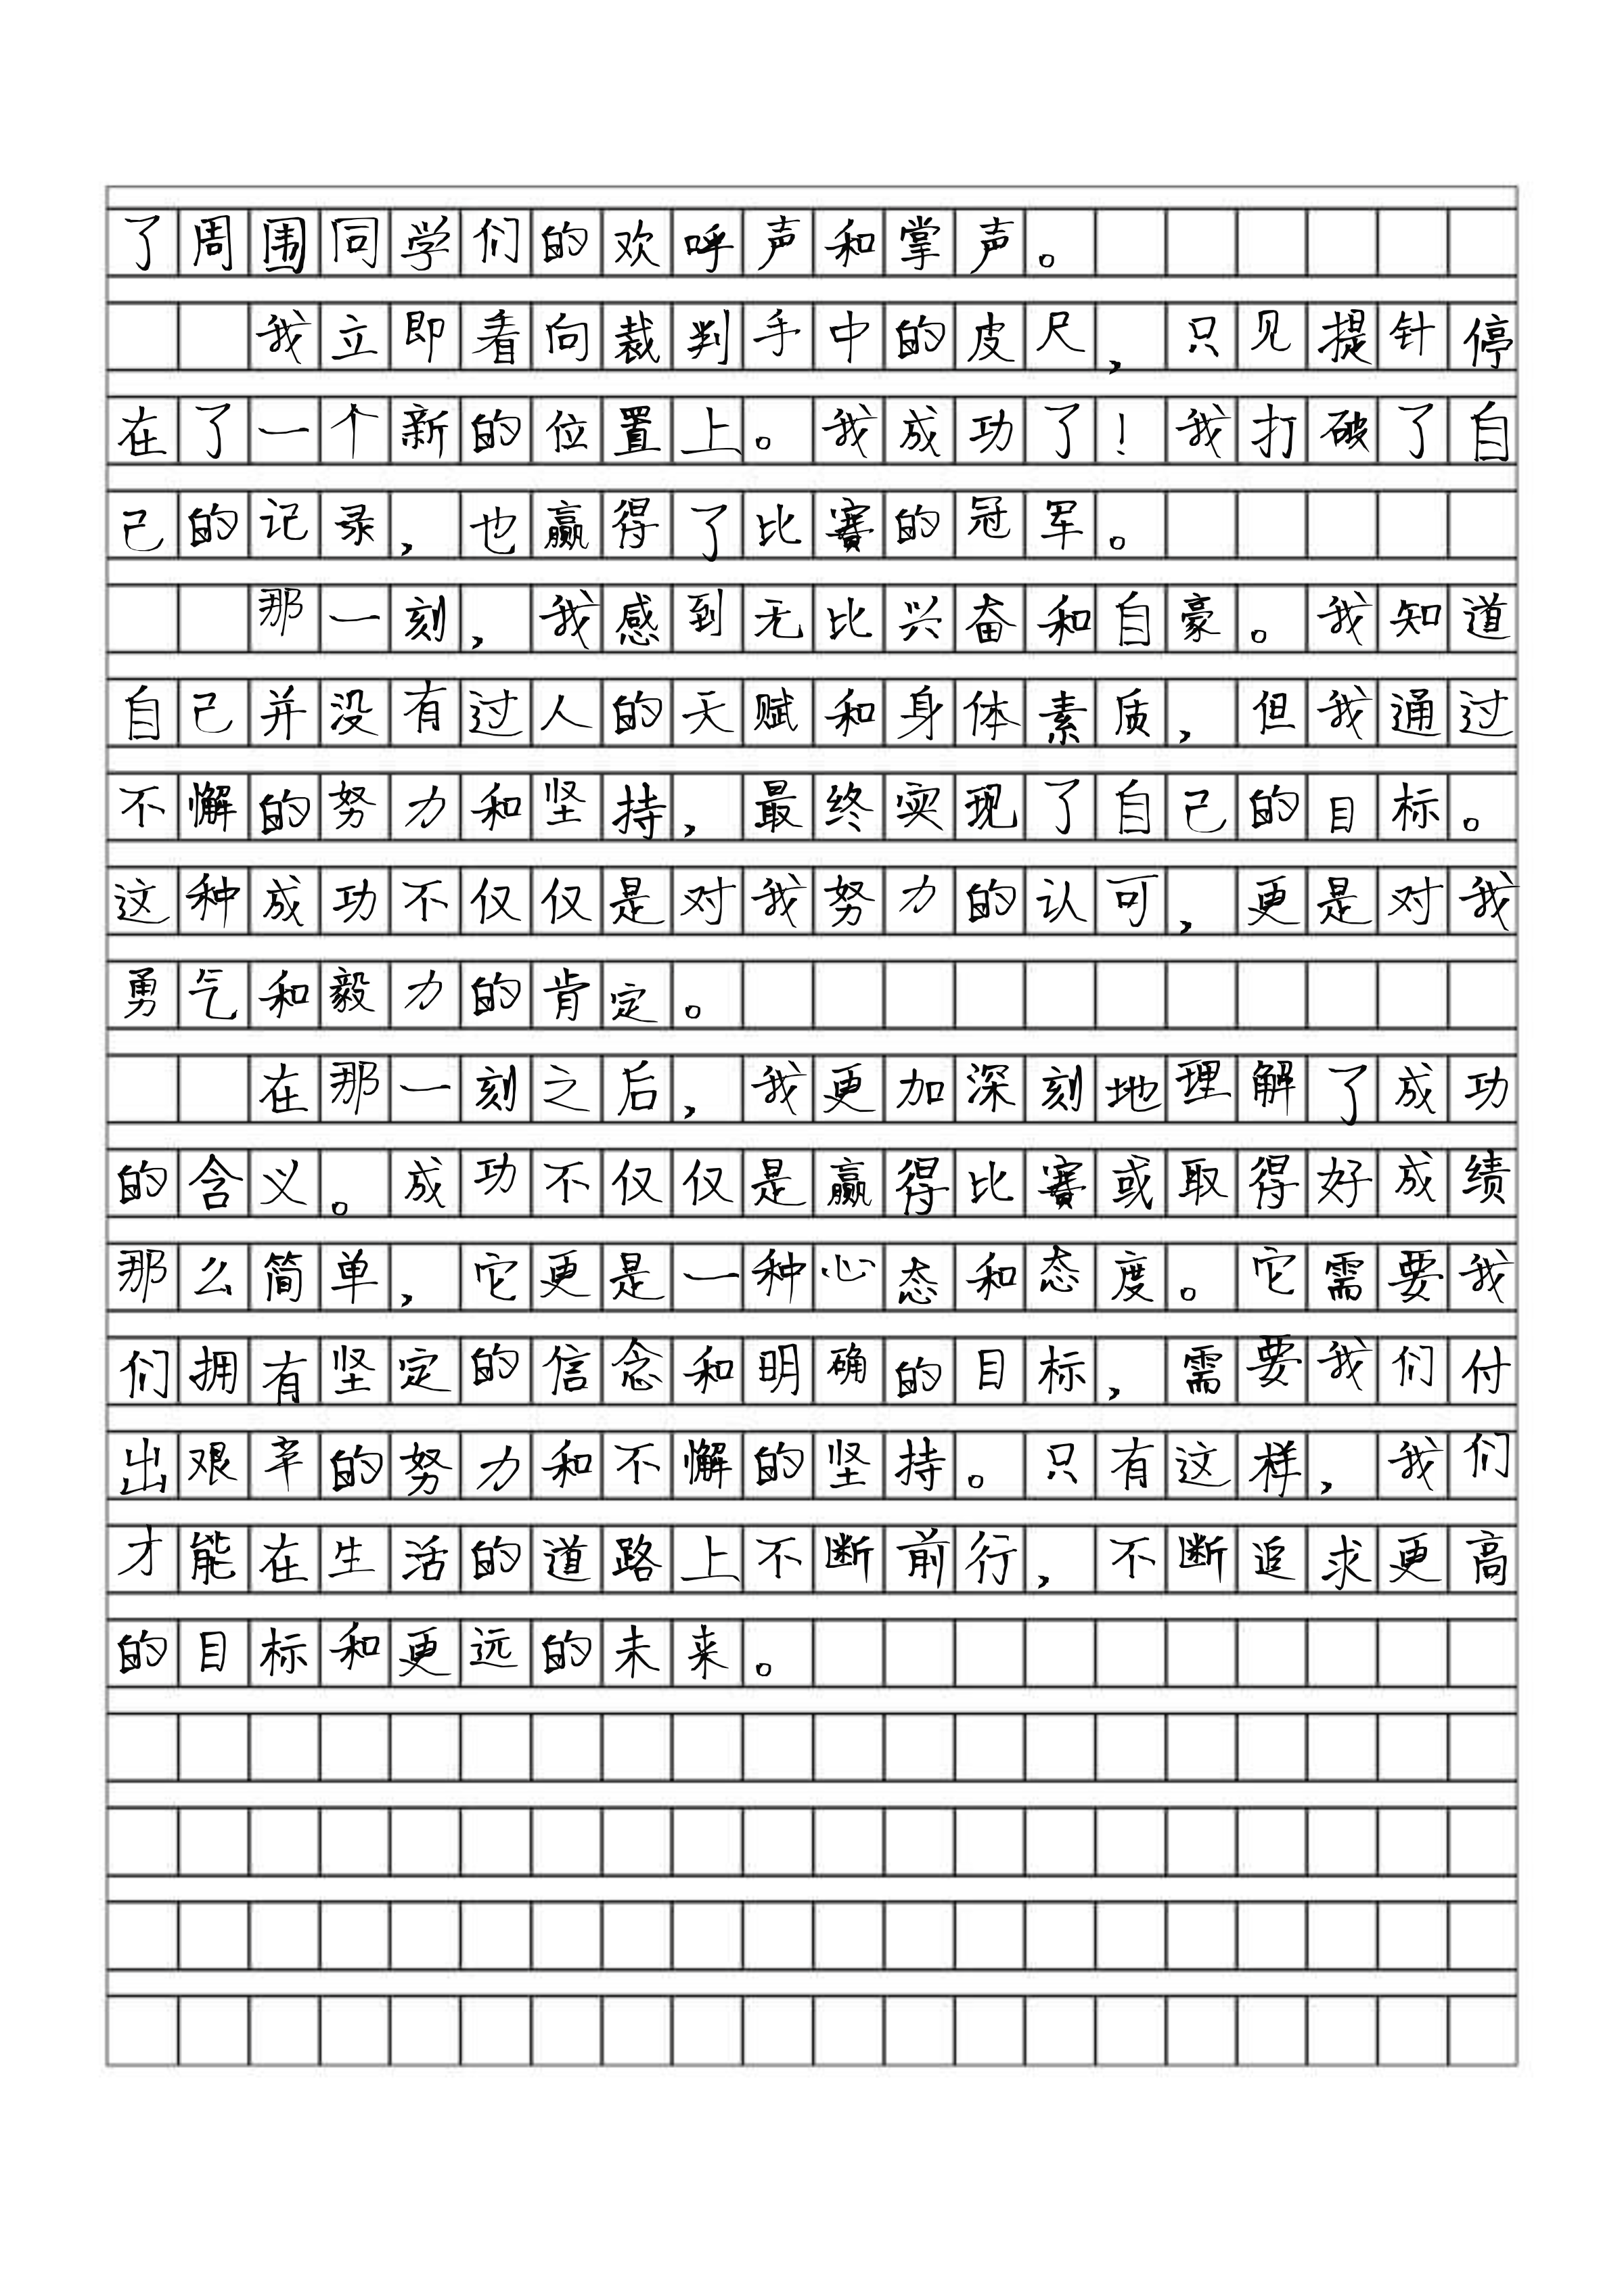 了周围同学们的欢呼声和掌声。
我立即看向裁判手中的皮尺，只见提针停
在了一个新的位置上。我成功了！我打破了自
己的记录，也赢得了比赛的冠军。
那一刻，我感到无比兴奋和自豪。我知道
自己并没有过人的天赋和身体素质，但我通过
不懈的努力和坚持，最终实现了自己的目标。
这种成功不仅仅是对我努力的认可，更是对我
勇气和毅力的肯定。
在那一刻之后，我更加深刻地理解了成功
的含义。成功不仅仅是赢得比赛或取得好成绩
那么简单，它更是一种心态和态度。它需要我
们拥有坚定的信念和明确的目标，需要我们付
出艰辛的努力和不懈的坚持。只有这样，我们
才能在生活的道路上不断前行，不断追求更高
的目标和更远的未来。